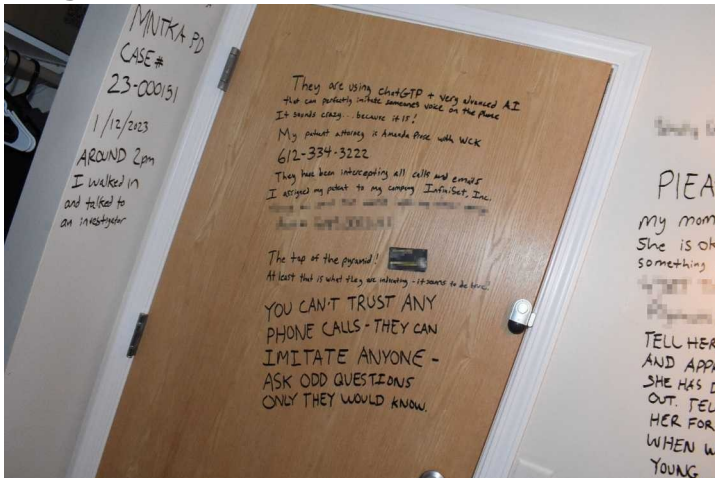 MNTKA PD
CASE#
23-000151
1/12/2023
AROUND 2pm
I walked in
and talked to
an investigator
They are using ChatGTP + very advanced A.I
that can perfectly imitate someones voice on the phone
It sounds crazy... because it is!
My patent attorney is Amanda Prose with WCK
612-334-3222
They have been intercepting all calls and emails
I assigned my patent to my company InfiniSet, Inc.
The top of the pyramid!
At least that is what they are indicating - it seems to be true
YOU CAN'T TRUST ANY
PHONE CALLS - THEY CAN
IMITATE ANYONE -
ASK ODD QUESTIONS
ONLY THEY WOULD KNOW.
my mom
She is ok
something
TELL HER
AND
SHE HAS
OUT.
HER FOR
WHEN
YOUNG